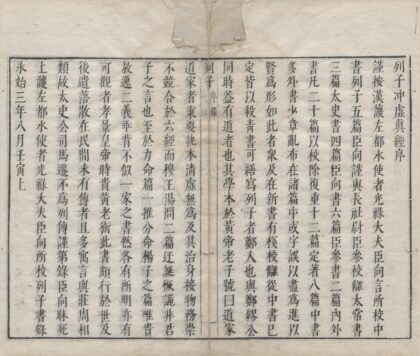 列子冲虛真經序
謹按漢護左都水使者光祿大夫臣向言所校中
書列子五篇臣向謹與長社尉臣參校讎太常書
三篇太史書四篇臣向書六篇臣參書二篇內外
書凢二十篇以校除復重十二篇定著八篇中書
多外書少章亂布在諸篇中或字誤以盡為進以
賢為形如此者衆及在新書有棧校讎從中書已
定皆以殺青書可繕寫列子者鄭人也與鄭繆公
同時葢有道者也其學本於黃帝老子號曰道家
列子 序
道家者秉要執本清虛無為及其治身接物務崇
不競合於六經而穆王湯問二篇迂誕恢詭非君
子之言也至於力命篇一推分命楊子之篇唯貴
放逸二義乖背不似一家之書然各有所明亦有
可觀者孝景皇帝時貴黃老術此書頗行於世及
後遺落散在民間未有傳者且多寓言與莊周相
類故太史公司馬遷不為列傳謹第錄臣向昧死
上護左都水使者光祿大夫臣向所校列子書錄
永始三年八月壬寅上